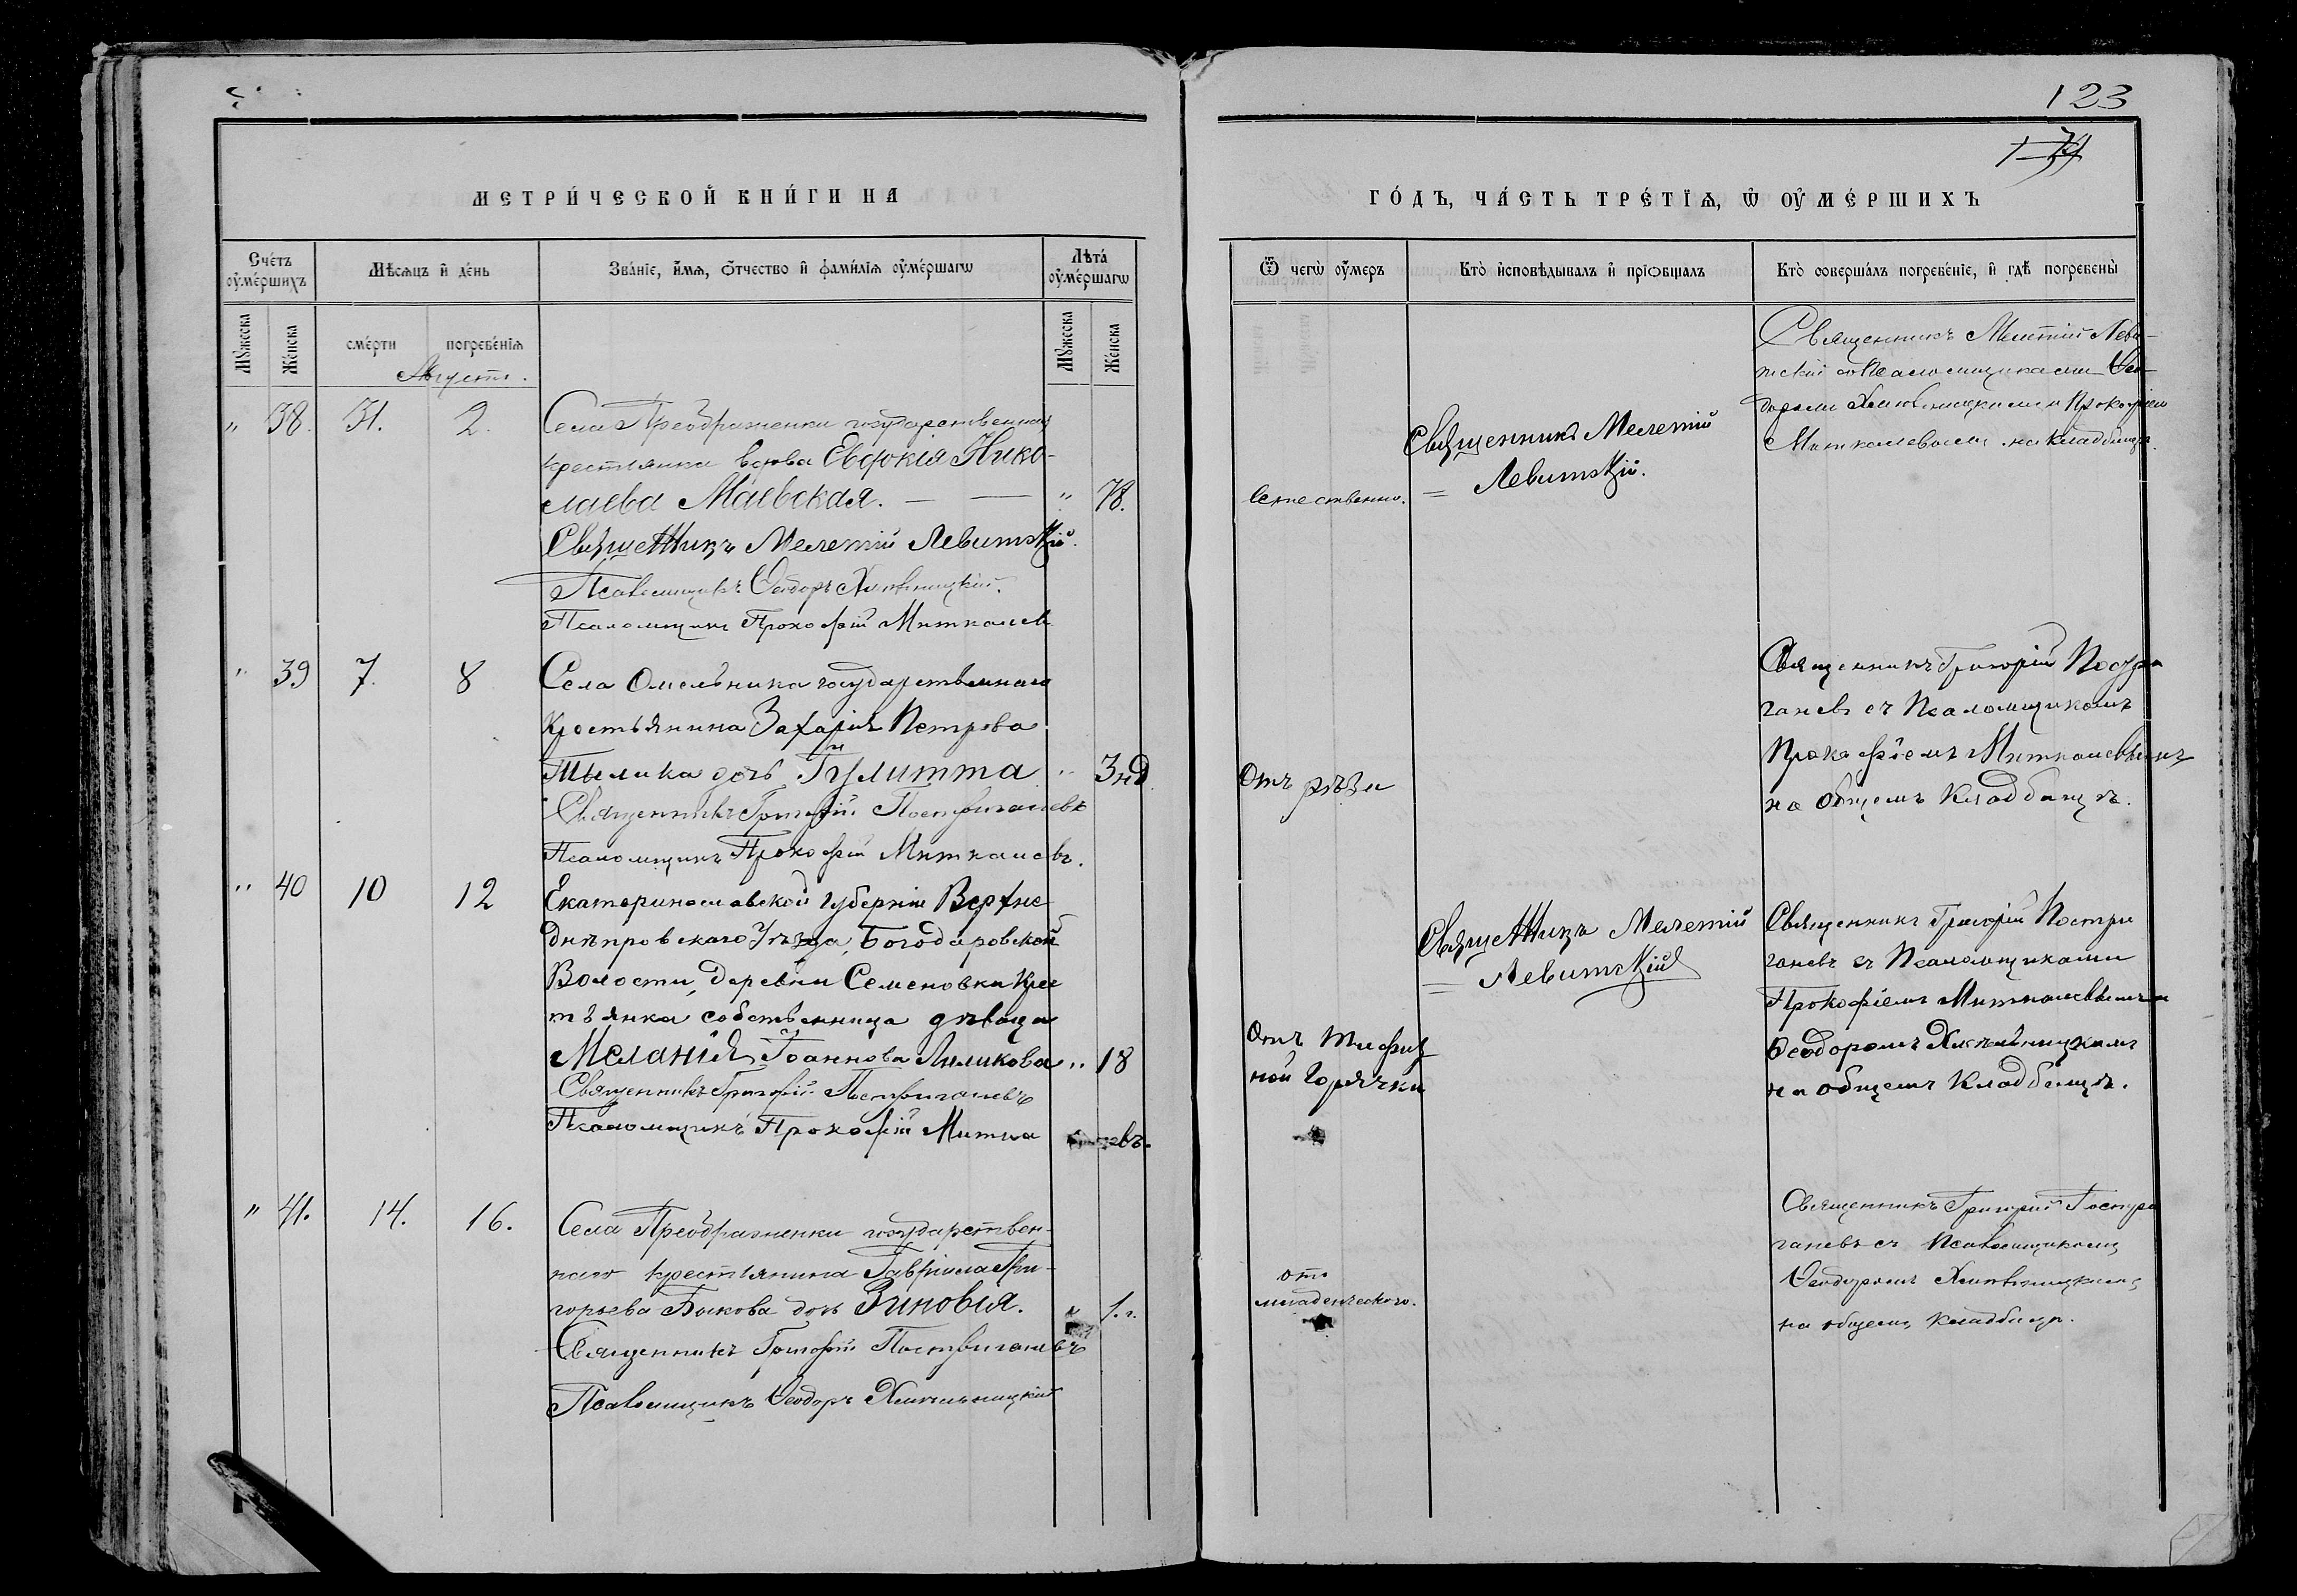 123
179
МЕТРИ́ЧЕСКОЙ КНИ́ГИ НА
ГО́ДЪ, ЧА́СТЬ ТРЕ́ТЇѦ, Ѡ҆ ОУ҆МЕ́РШИХЪ
Сче́тъ оу҆ме́ршихъ
Мѣ́сяцъ и҆ де́нь
Зва́нїе, и҆́мя, ѻ҆́тчество и҆ фами́лїя оу҆ме́ршагѡ
Лѣта̀ оу҆ме́ршагѡ
Ѿ чегѡ̀ оу҆́меръ
Кто̀ и҆сповѣ́дывалъ и҆ прїѻбща́лъ
Кто̀ соверша́лъ погребе́нїе, и҆ гдѣ̀ погребены̀
Мꙋ́жеска
Же́нска
сме́рти
погребе́нїѧ
Мꙋ́жеска
Же́нска
Августъ.
" 38. 31. 2.
Села Преображенки государственная
крестьянка вдова Евдокія Нико-
лаева Маевская. — — " 78.
Священникъ Мелетій Левитскій.
Псаломщикъ Ѳеодоръ Хмѣльницкій.
Псаломщикъ Прокофій Миткалев
Естественно.
Священникъ Мелетій
= Левитскій.
Священникъ Мелетій Леви-
тскій со Псаломщиками Ѳео-
доромъ Хмѣльницкимъ и Прокофіем
Миткалевымъ на кладбищѣ.
" 39 7. 8
Села Омельника государственнаго
Крестьянина Захарія Петрова
дочь Іулитта " 3 нд
Священникъ Григорій Постригачевъ
Псаломщикъ Прокофій Миткалевъ.
Отъ рѣзи
Священникъ Григорій Постри
гачевъ съ Псаломщикомъ
Прокофіемъ Миткалевымъ
на общемъ Кладбищѣ.
" 40 10 12
Екатеринославской губерніи Верхне
днѣпровскаго Уѣзда, Богодаровской
Волости, Деревни Семеновки Крес
тьянка собственница дѣвица
Меланія Іоаннова " 18
Священникъ Григорій Постригачевъ
Псаломщикъ Прокофій Митка левъ.
Отъ Тифоз
ной Горячки
Священникъ Мелетій
= Левитскій
Священникъ Григорій Постри
гачевъ съ Псаломщиками
Прокофіемъ Миткалевымъ и
Ѳеодоромъ Хмѣльницкимъ
на общемъ Кладбищѣ.
" 41. 14. 16.
Села Преображенки государствен-
наго крестьянина Гавріила Гри-
горьева Быкова дочь Зиновія. " 1. г.
Священникъ Григорій Постригачевъ
Псаломщикъ Ѳеодоръ Хмѣльницкій
отъ
младенческаго.
Священникъ Григорій Постри
гачевъ съ Псаломщикомъ
Ѳеодоромъ Хмѣльницкимъ
на общемъ Кладбищѣ.